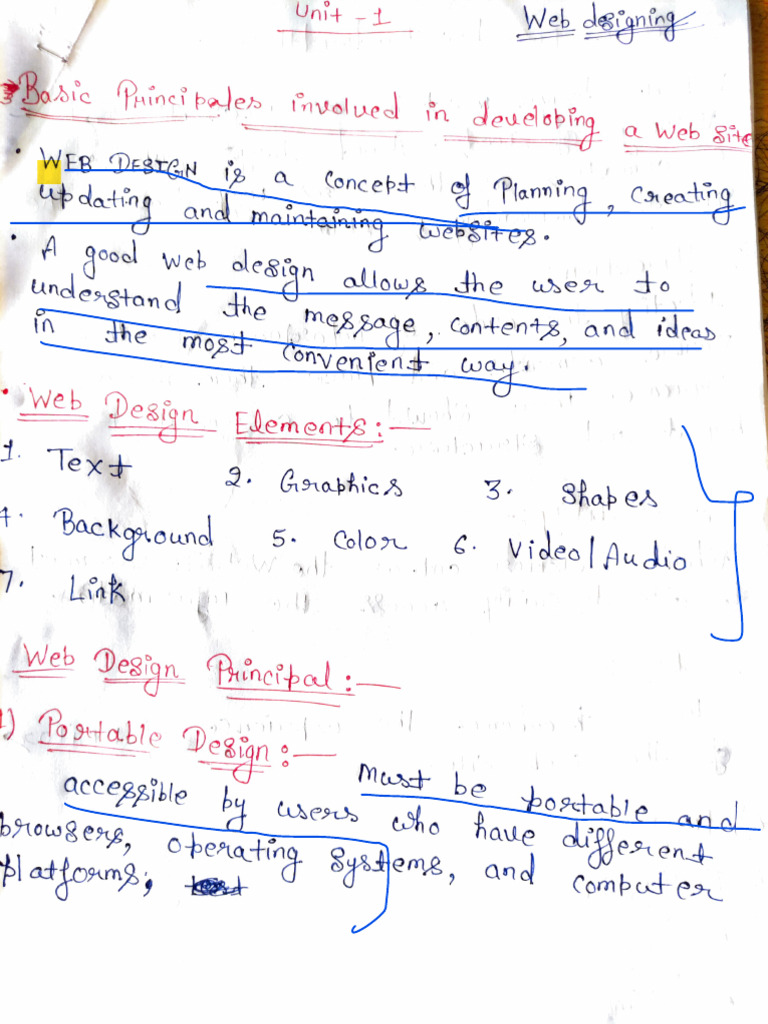 Unit - 1 Web designing
Basic Principales involved in developing a Web Site
• WEB DESIGN is a concept of Planning, creating
updating and maintaining websites.
• A good web design allows the user to
understand the message, contents, and ideas
in the most convenient way.
• Web Design Elements:—
1. Text 2. Graphics 3. Shapes
4. Background 5. Color 6. Video/Audio
7. Link
Web Design Principal:—
1) Portable Design:—
Must be portable and
accessible by users who have different
browsers, operating systems, and computer
platforms;